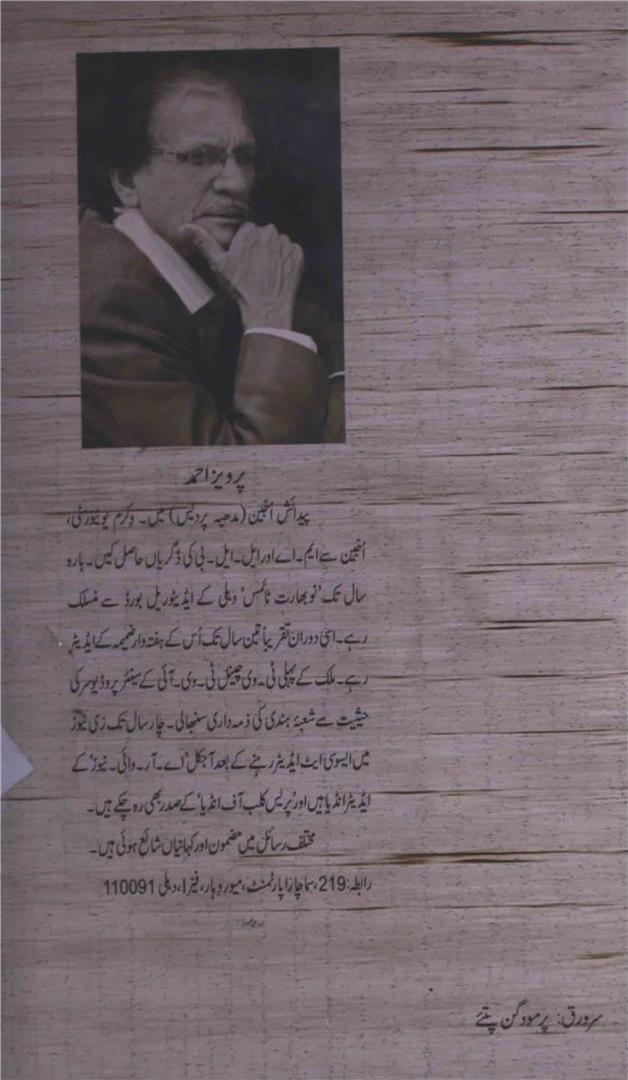 پرویز احمد
پیدائش اُجین (مدھیہ پردیش) میں۔ وکرم یونیورسٹی،
اُجین سے ایم۔اے اور ایل۔ایل۔بی کی ڈگریاں حاصل کیں۔ بارہ
سال تک 'نوبھارت ٹائمس' دہلی کے ایڈیٹوریل بورڈ سے منسلک
رہے۔ اسی دوران تقریباً تین سال تک اُس کے ہفتہ وار ضمیمہ کے ایڈیٹر
رہے۔ ملک کے پہلی ٹی۔وی چینل ٹی۔وی۔آئی کے سینئر پروڈیوسر کی
حیثیت سے شعبۂ ہندی کی ذمہ داری سنبھالی۔ چار سال تک زی نیوز
میں ایسوسی ایٹ ایڈیٹر رہنے کے بعد آجکل 'اے۔آر۔وائی۔نیوز' کے
ایڈیٹر انڈیا ہیں اور 'پریس کلب آف انڈیا' کے صدر بھی رہ چکے ہیں۔
مختلف رسائل میں مضمون اور کہانیاں شائع ہوئی ہیں۔
رابطہ: 219، سماچار اپارٹمنٹ، میور وہار، فیز I، دہلی 110091
سرورق: پرمود گن پتئے